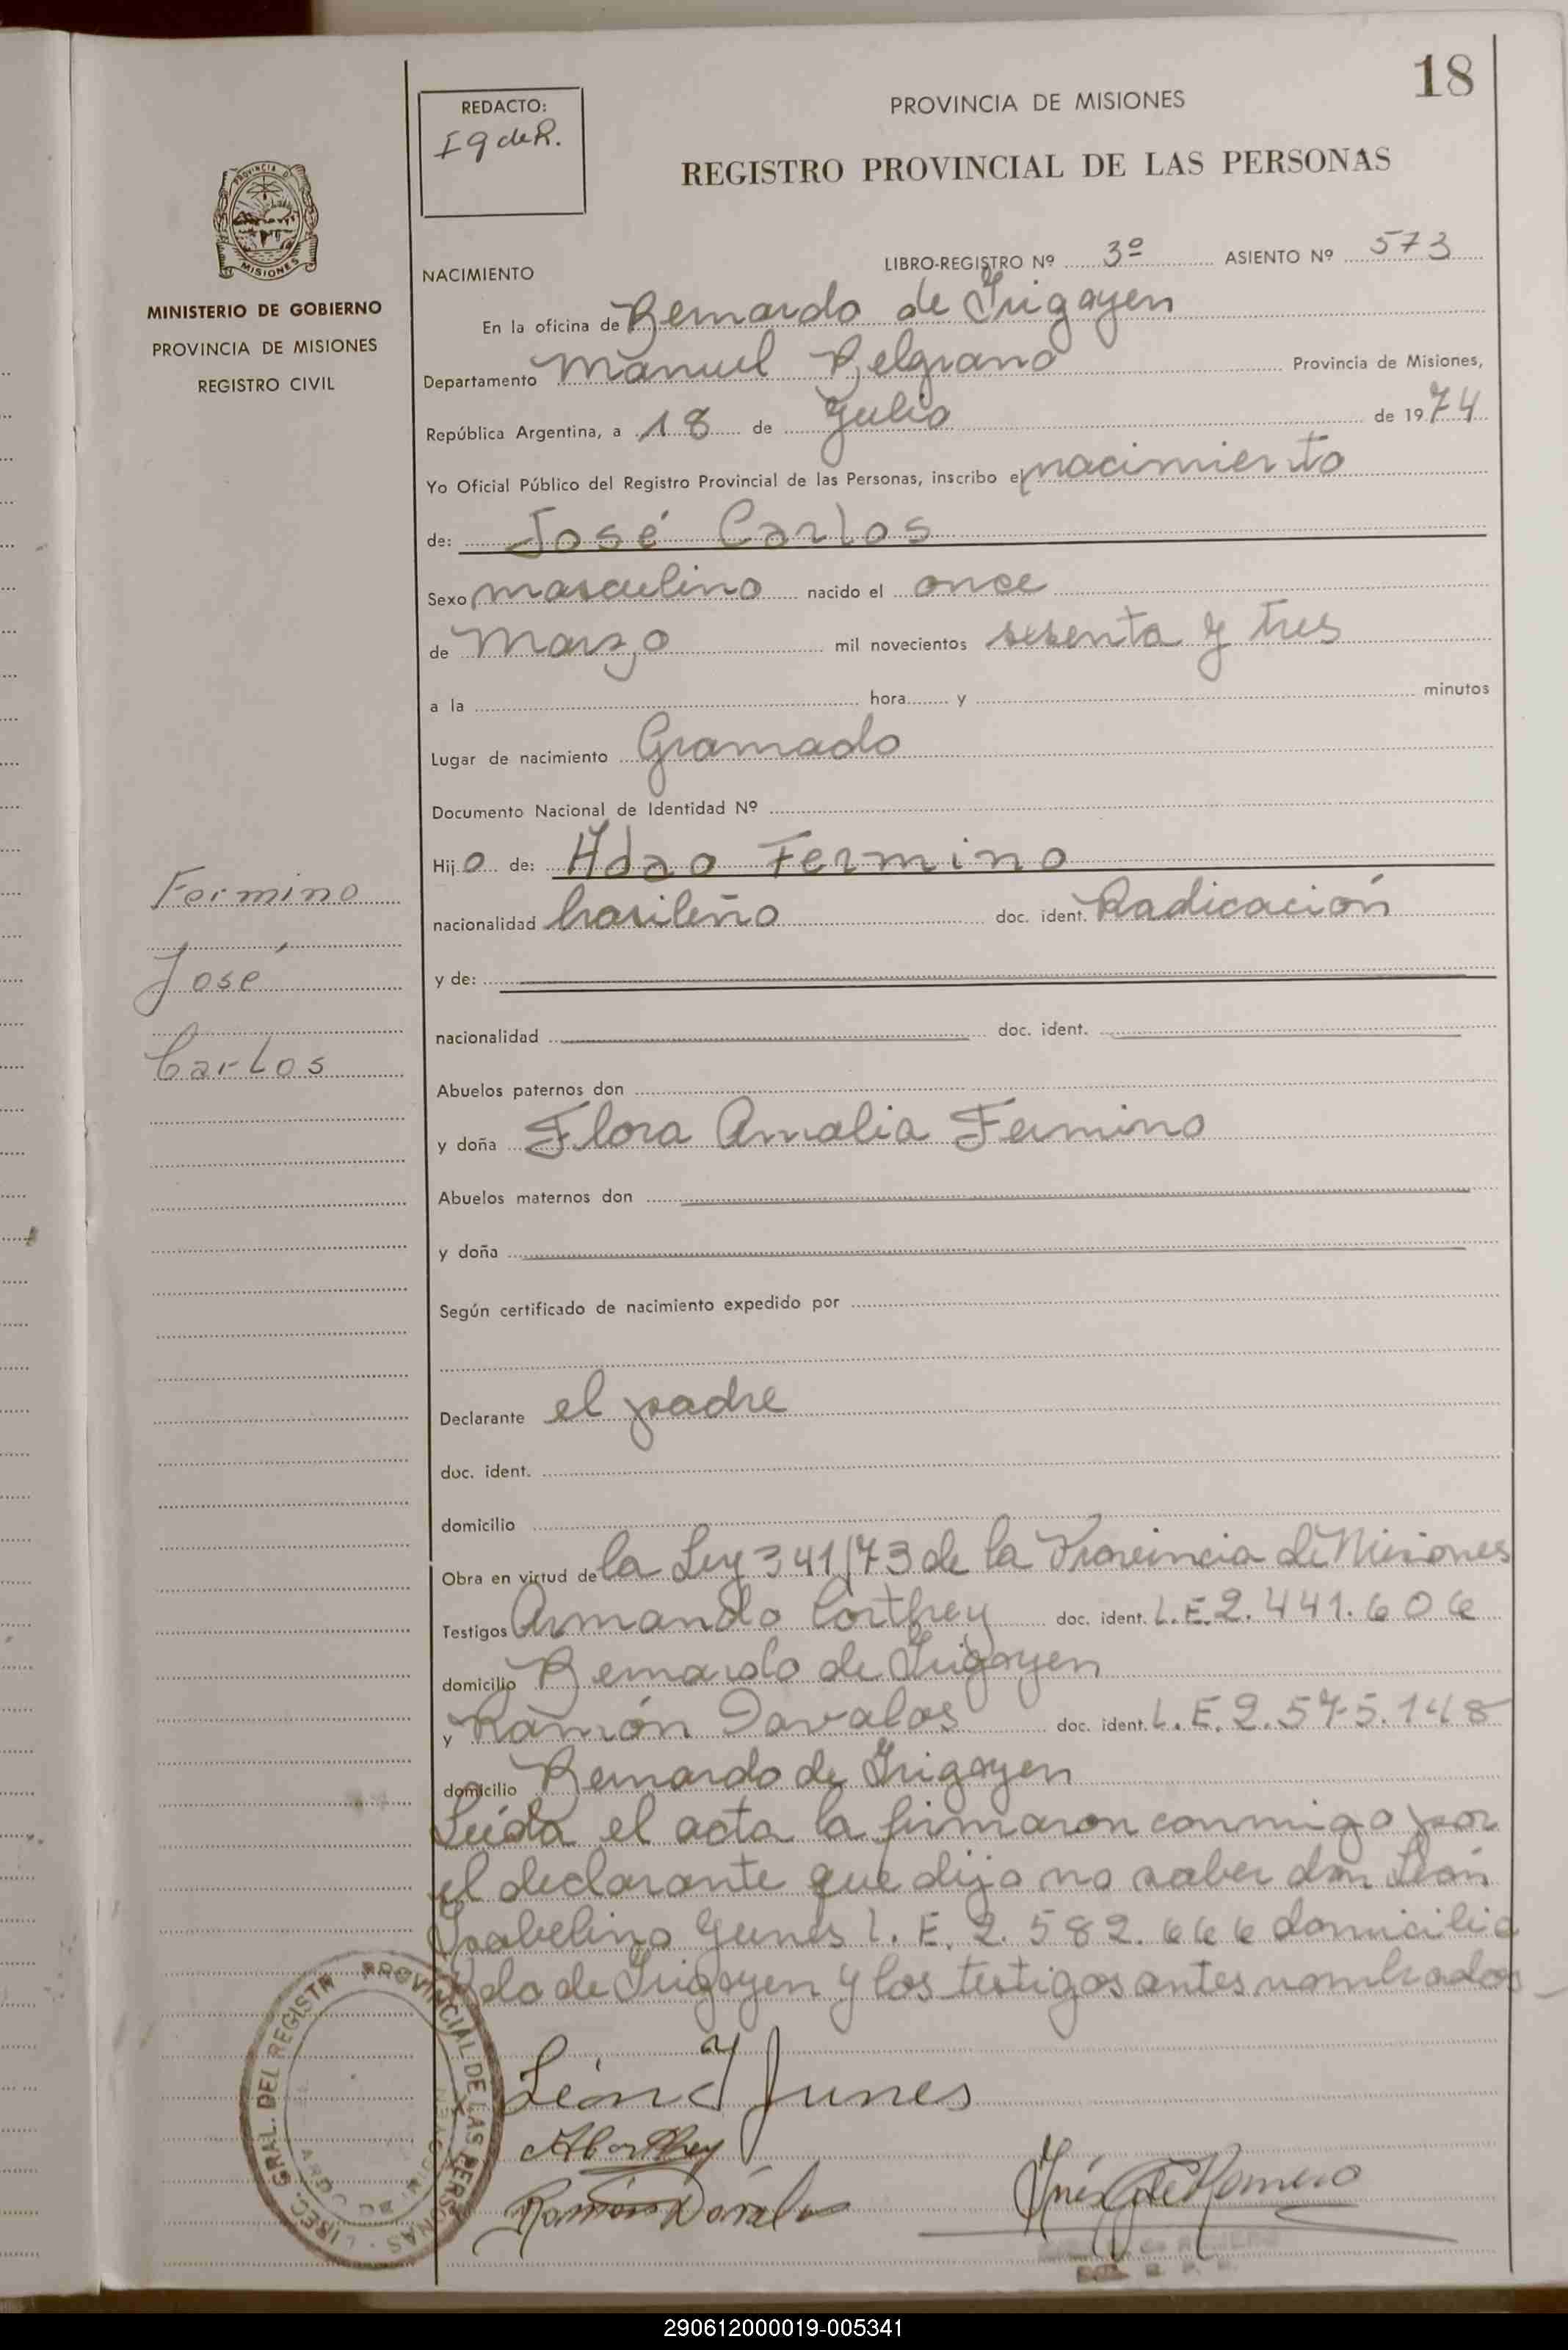 18
REDACTO:
I G de R.
PROVINCIA DE MISIONES
REGISTRO PROVINCIAL DE LAS PERSONAS
MISIONES
MINISTERIO DE GOBIERNO
PROVINCIA DE MISIONES
REGISTRO CIVIL
LIBRO-REGISTRO Nº 3º ASIENTO Nº 573
NACIMIENTO
En la oficina de Bernardo de Irigoyen
Departamento Manuel Belgrano Provincia de Misiones,
República Argentina, a 18 de Julio de 1974
Yo Oficial Público del Registro Provincial de las Personas, inscribo el nacimiento
de: José Carlos
Sexo masculino nacido el once
de Marzo mil novecientos sesenta y tres
a la hora y minutos
Lugar de nacimiento Gramado
Documento Nacional de Identidad Nº
Hijo de: Adao Fermino
nacionalidad brasileño doc. ident. Radicación
y de:
nacionalidad doc. ident.
Fermino
José
Carlos
Abuelos paternos don
y doña Flora Amalia Fermino
Abuelos maternos don
y doña
Según certificado de nacimiento expedido por
Declarante el padre
doc. ident.
domicilio
Obra en virtud de la Ley 341/73 de la Provincia de Misiones
Testigos Armando Corthey doc. ident. L.E. 2.441.606
domicilio Bernardo de Irigoyen
y Ramón Davalos doc. ident. L.E. 2.575.148
domicilio Bernardo de Irigoyen
Leída el acta la firmaron conmigo por
el declarante que dijo no saber don León
Isabelino Yunes L.E. 2.582.666 domicilio
Bdo de Irigoyen y los testigos antes nombrados
León Y Junes
ACorthey
Ramón Dávalos
Inés G de Romero
DIREC. GRAL. DEL REGISTR PROVINCIAL DE LAS PERSONAS
290612000019-005341